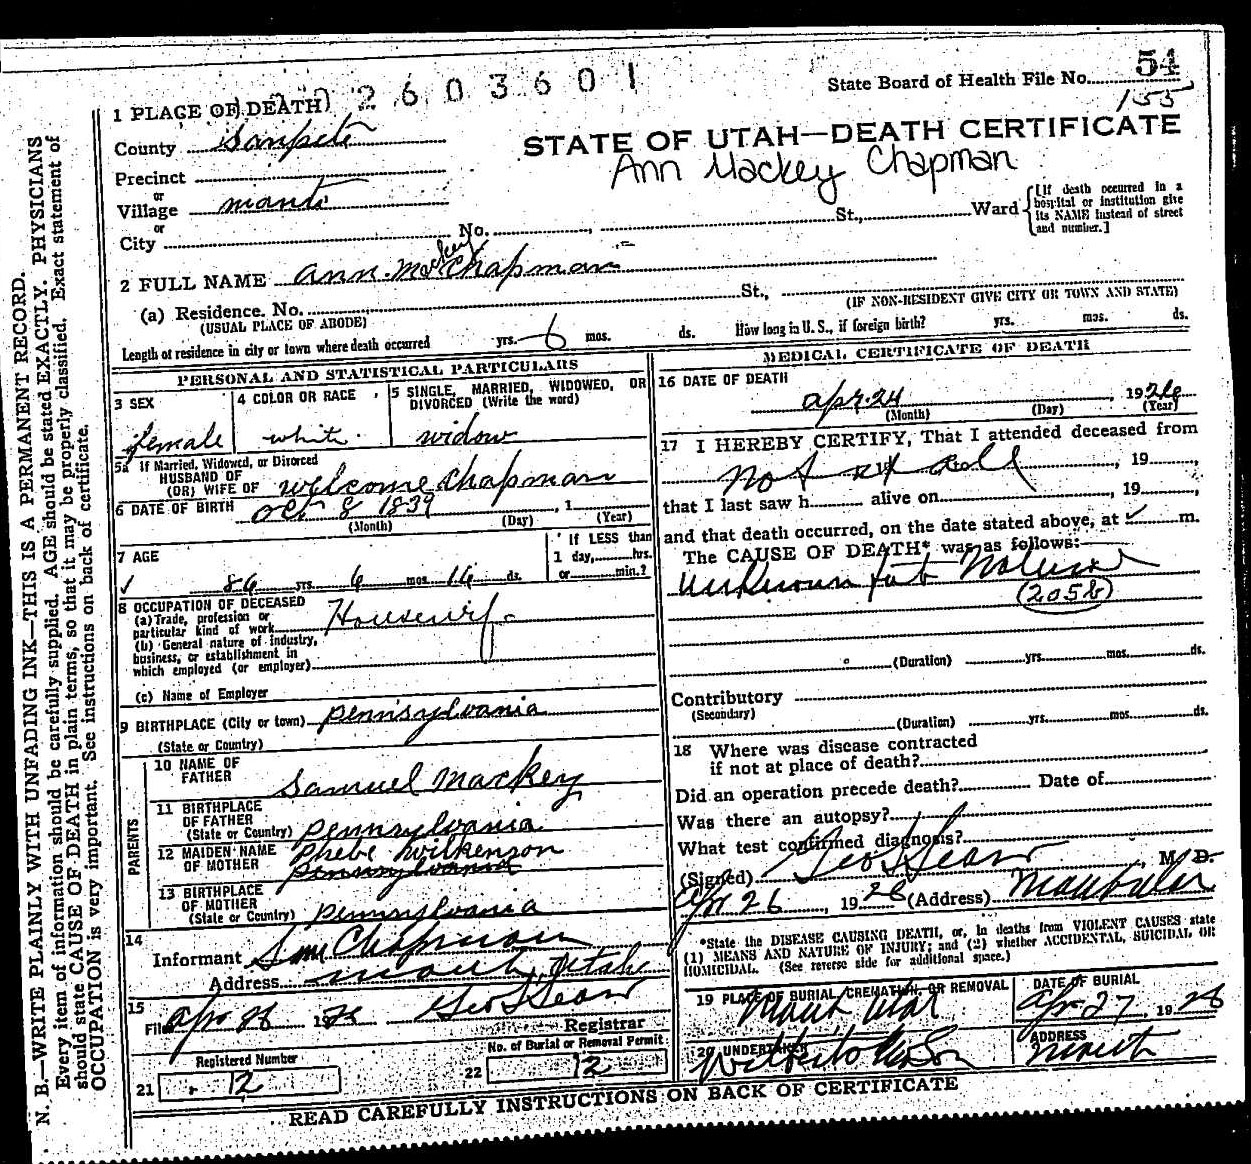 2603601
State Board of Health File No. 54
155
1 PLACE OF DEATH
STATE OF UTAH—DEATH CERTIFICATE
Ann Mackey Chapman
County Sanpete
Precinct
or
Village Manti
or
City
No. St., Ward
[If death occurred in a
hospital or institution give
its NAME instead of street
and number.]
2 FULL NAME Ann Mackey Chapman
(a) Residence. No. St.,
(USUAL PLACE OF ABODE)
(IF NON-RESIDENT GIVE CITY OR TOWN AND STATE)
Length of residence in city or town where death occurred yrs. 6 mos. ds. How long in U. S., if foreign birth? yrs. mos. ds.
PERSONAL AND STATISTICAL PARTICULARS
3 SEX
female
4 COLOR OR RACE
white
5 SINGLE, MARRIED, WIDOWED, OR
DIVORCED (Write the word)
widow
5a If Married, Widowed, or Divorced
HUSBAND OF
(OR) WIFE OF Welcome Chapman
6 DATE OF BIRTH Oct 8 1839, 1
(Month) (Day) (Year)
7 AGE
86 yrs. 6 mos. 16 ds.
If LESS than
1 day, hrs.
or min.?
8 OCCUPATION OF DECEASED
(a) Trade, profession or
particular kind of work Housewife
(b) General nature of industry,
business, or establishment in
which employed (or employer)
(c) Name of Employer
9 BIRTHPLACE (City or town) Pennsylvania
(State or Country)
PARENTS
10 NAME OF
FATHER Samuel Mackey
11 BIRTHPLACE
OF FATHER
(State or Country) Pennsylvania
12 MAIDEN NAME
OF MOTHER Phebe Wilkenson
Pennsylvania
13 BIRTHPLACE
OF MOTHER
(State or Country) Pennsylvania
14
Informant Chapman
Address Manti, Utah
15
Filed Apr 28 19
Registrar
Registered Number
21 12
No. of Burial or Removal Permit
22 12
MEDICAL CERTIFICATE OF DEATH
16 DATE OF DEATH
Apr. 24, 1926
(Month) (Day) (Year)
17 I HEREBY CERTIFY, That I attended deceased from
Not at all, 19,
that I last saw h alive on , 19,
and that death occurred, on the date stated above, at m.
The CAUSE OF DEATH* was as follows:
Unknown but Natural
(205b)
(Duration) yrs. mos. ds.
Contributory
(Secondary)
(Duration) yrs. mos. ds.
18 Where was disease contracted
if not at place of death?
Did an operation precede death? Date of
Was there an autopsy?
What test confirmed diagnosis?
(Signed) , M. D.
Apr 26, 1926 (Address) Manti Utah
*State the DISEASE CAUSING DEATH, or, in deaths from VIOLENT CAUSES state
(1) MEANS AND NATURE OF INJURY; and (2) whether ACCIDENTAL, SUICIDAL OR
HOMICIDAL. (See reverse side for additional space.)
19 PLACE OF BURIAL, CREMATION, OR REMOVAL
Manti Utah
DATE OF BURIAL
Apr 27, 1926
20 UNDERTAKER
ADDRESS
Manti
READ CAREFULLY INSTRUCTIONS ON BACK OF CERTIFICATE
N. B.—WRITE PLAINLY WITH UNFADING INK—THIS IS A PERMANENT RECORD.
Every item of information should be carefully supplied. AGE should be stated EXACTLY. PHYSICIANS
should state CAUSE OF DEATH in plain terms, so that it may be properly classified. Exact statement of
OCCUPATION is very important. See instructions on back of certificate.